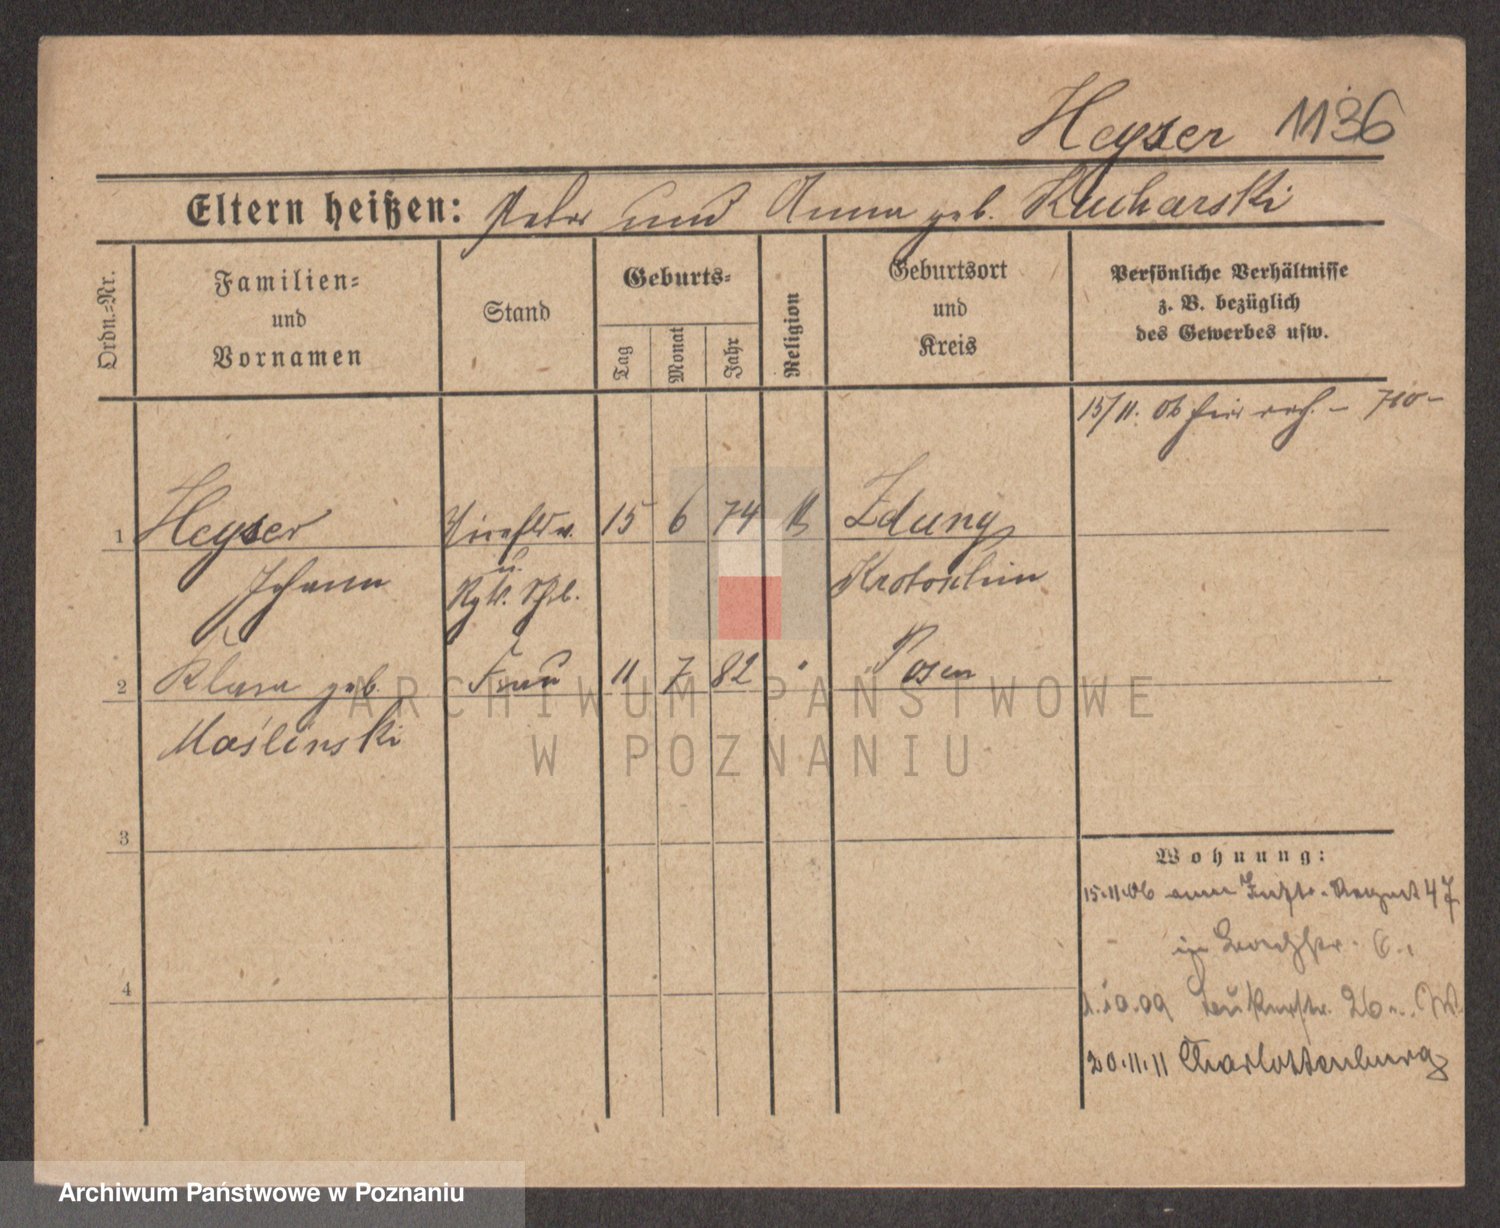 Heyser 1136
Eltern heißen: Peter und Anna geb. Kucharski
Ordn.-Nr.
Familien-
und
Vornamen
Stand
Geburts-
Tag
Monat
Jahr
Religion
Geburtsort
und
Kreis
Persönliche Verhältnisse
z. B. bezüglich
des Gewerbes usw.
15/11. 06
1 Heyser 15 6 74 Zduny
Johann u. Krotoschin
2 Klara geb. Frau 11 7 82 Posen
Maślinski
3
4
Wohnung:
15.11.06 47
6.
1.10.09 26
20.11.11 Charlottenburg
ARCHIWUM PAŃSTWOWE
W POZNANIU
Archiwum Państwowe w Poznaniu